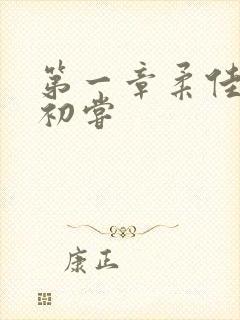 第一章柔佳
初嘗
康正